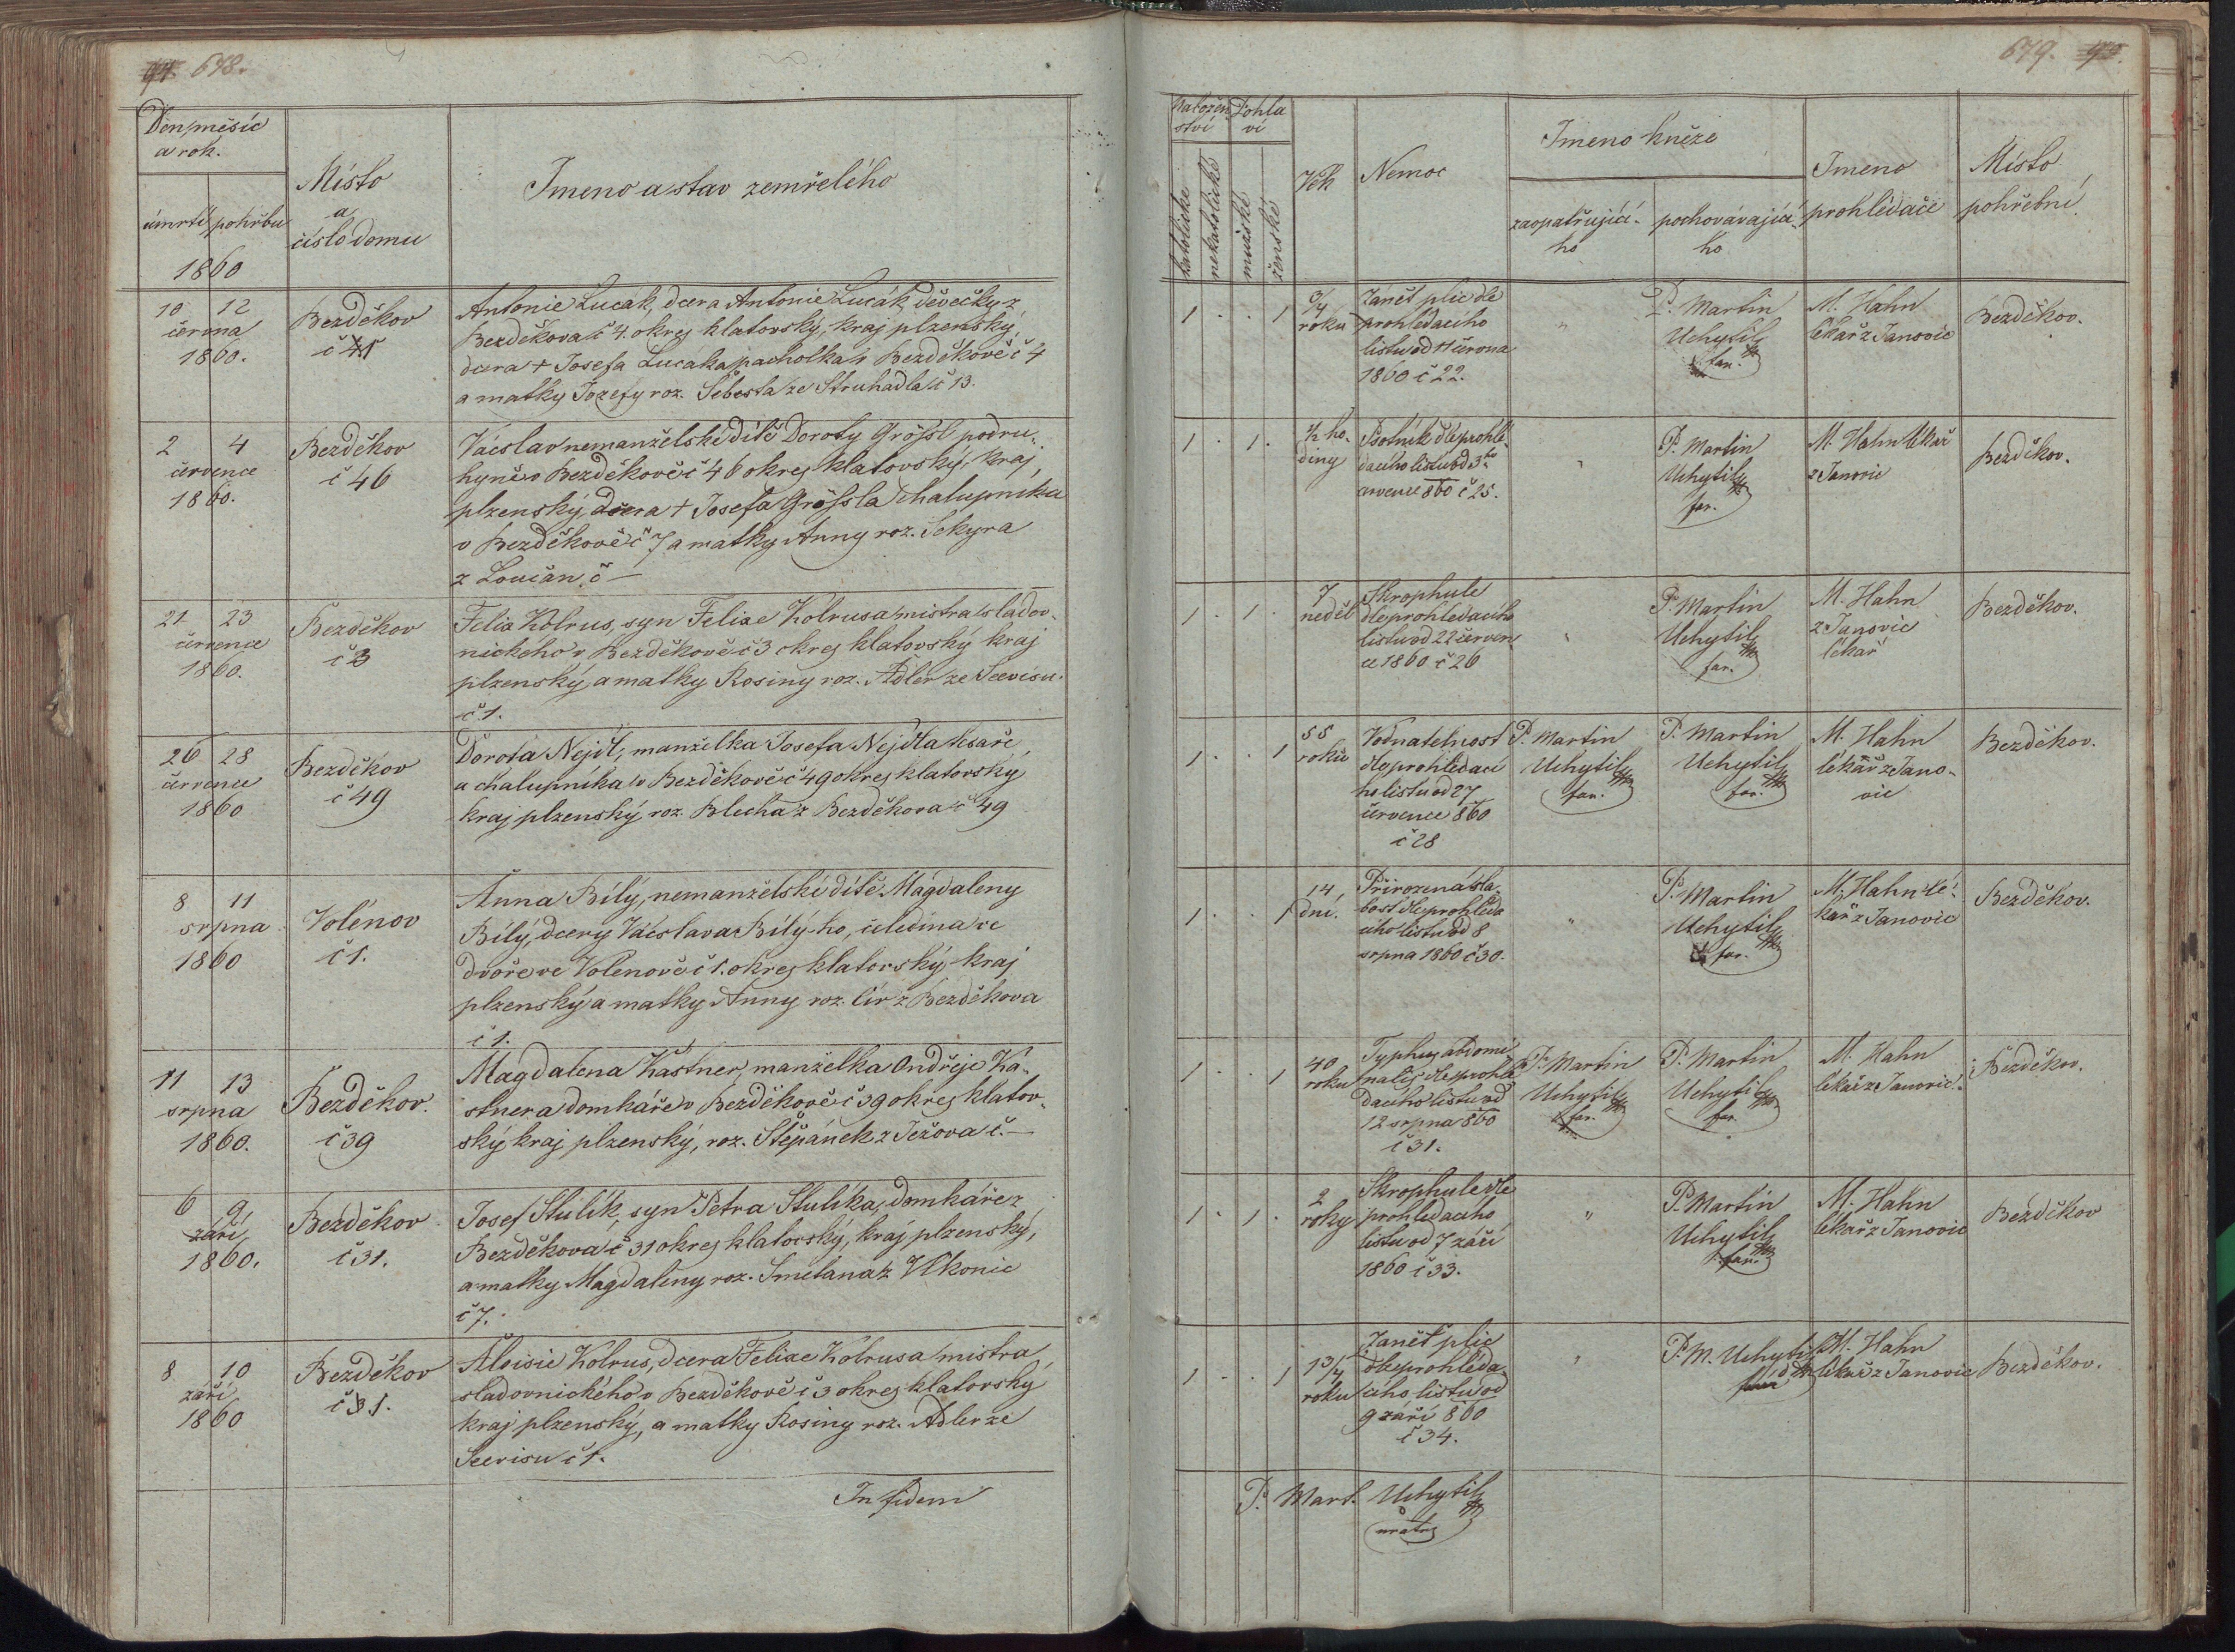 678.
Den, měsíc
a rok.
úmrtí pohřbu
1860
Místo
a
číslo domu
Jmeno a stav zemřelého
10 12
června
1860.
Bezděkov
Antonie Lucák, dcera Antonie Lucák, děvečky z
Bezděkova č 4. okres klatovský, kraj plzenský,
dcera + Josefa Lucaka pacholka v Bezděkově č 4
a matky Jozefy roz. Šebesta ze Struhadla č 13.
2 4
července
1860.
Bezděkov
č 46
Václav nemanželské dítě Doroty Grössl podru-
hyně v Bezděkově č 46 okres klatovský, kraj
plzenský, dcera + Josefa Grössla chalupníka
v Bezděkově č 7 a matky Anny roz. Sekyra
z Loučan č —
21 23
července
1860.
Bezděkov
č 3
Felix Kolrus, syn Felixe Kolrusa mistra sladov-
nického v Bezděkově č 3 okres klatovský kraj
plzenský, a matky Rosiny roz. Adler ze Seevisu
č 1.
26 28
července
1860
Bezděkov
č 49
Dorota Nejdl, manželka Josefa Nejdla tesaře
a chalupníka v Bezděkově č 49 okres klatovský
kraj plzenský, roz. Blecha z Bezděkova č 49
8 11
srpna
1860
Volénov
č 1.
Anna Bílý, nemanželské dítě Magdaleny
Bílý, dcery Václava Bílý-ho, čeledína ve
dvoře ve Volenově č 1. okres klatovský, kraj
plzenský a matky Anny roz. Cír z Bezděkova
č 1.
11 13
srpna
1860.
Bezděkov.
č 39
Magdalena Kastner, manželka Ondřeje Ka-
stnera domkáře v Bezděkově č 39 okres klatov-
ský kraj plzenský, roz. Štěpánek z Ježova č. —
6 9
září
1860.
Bezděkov
č 31.
Josef Stulík, syn Petra Stulíka, domkáře z
Bezděkova č 31 okres klatovský, kraj plzenský,
a matky Magdaleny roz. Smetana z Vlkonic
č 7.
8 10
září
1860
Bezděkov
Aloisie Kolrus, dcera Felixe Kolrusa mistra
sladovnického v Bezděkově č 3 okres klatovský
kraj plzenský, a matky Rosiny roz. Adler ze
Seevisu č 1.
In fidem
679.
Nábožen-
ství
Pohla-
ví
katolické
nekatolické
mužské
ženské
Věk
Nemoc
Jmeno kněze
zaopatřujicí-
ho
pochovávajicí-
ho
Jmeno
prohlédače
Místo
pohřební
1 . . 1
3/4
roku
Zánět plic dle
prohledacího
listu od 11 června
1860 č 22.
"
P. Martin
Uchytil
far.
M. Hahn
lékař z Janovic
Bezděkov.
1 . 1 .
1/2 ho-
diny
Psotník dle prohlé-
dacího listu od 3ho
července 860 č 25.
"
P. Martin
Uchytil
far.
M. Hahn lékař
z Janovic
Bezděkov.
1 . 1 .
7
neděl
Skrophule
dle prohledacího
listu od 22 červen-
ce 1860 č 26
"
P. Martin
Uchytil
far.
M. Hahn
z Janovic
lékař
Bezděkov.
1 . . 1
55
roků
Vodnatelnost
dle prohledací
ho listu od 27
července 860
č 28
P. Martin
Uchytil
far.
P. Martin
Uchytil
far.
M. Hahn
lékař z Jano-
vic
Bezděkov.
1 . . 1
14
dní.
Přirozená sla-
bost dle prohleda
cího listu od 8
srpna 1860 č 30.
"
P. Martin
Uchytil
far.
M. Hahn lé-
kař z Janovic
Bezděkov.
1 . . 1
40
roku
Typhus abdomi-
nalis dle prohle
dacího listu od
12 srpna 860
č 31.
P. Martin
Uchytil
far.
P. Martin
Uchytil
far.
M. Hahn
lékař z Janovic.
Bezděkov.
1 . 1 .
2
roky
Skrophule dle
prohledacího
listu od 7 září
1860 č 33.
"
P. Martin
Uchytil
far.
M. Hahn
lékař z Janovic
Bezděkov
1 . . 1
1 3/4
roku
Zánět plic
dle prohléda-
cího listu od
9 září 860
č 34.
"
P. M. Uchytil
M. Hahn
lékař z Janovic
Bezděkov.
P. Mart. Uchytil